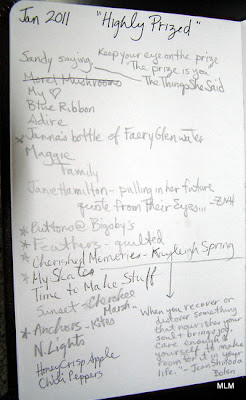 Jan 2011 "Highly Prized"
Sandy saying Keep your eye on the prize
The prize is you
Morel Mushrooms The Things She Said
My ♡
Blue Ribbon
Adire
* Janna's bottle of Faery Glen water
Maggie
Family
Jane Hamilton - pulling in her future
quote from Their Eyes... - ZNH
* Buttons @ Bigoby's
* Feathers - quilted
* Cherished Memories - Kayleigh Spring
* My Skates
Time to Make Stuff
Sunset - Cherokee
Marsh..
* Anchors - Kites
N. Lights
Honey Crisp Apple
Chili Peppers
"When you recover or
discover something
that nourishes your
soul + brings joy,
care enough @
yourself to make
room for it in your
life." - Jean Shinoda
Bolen
MLM